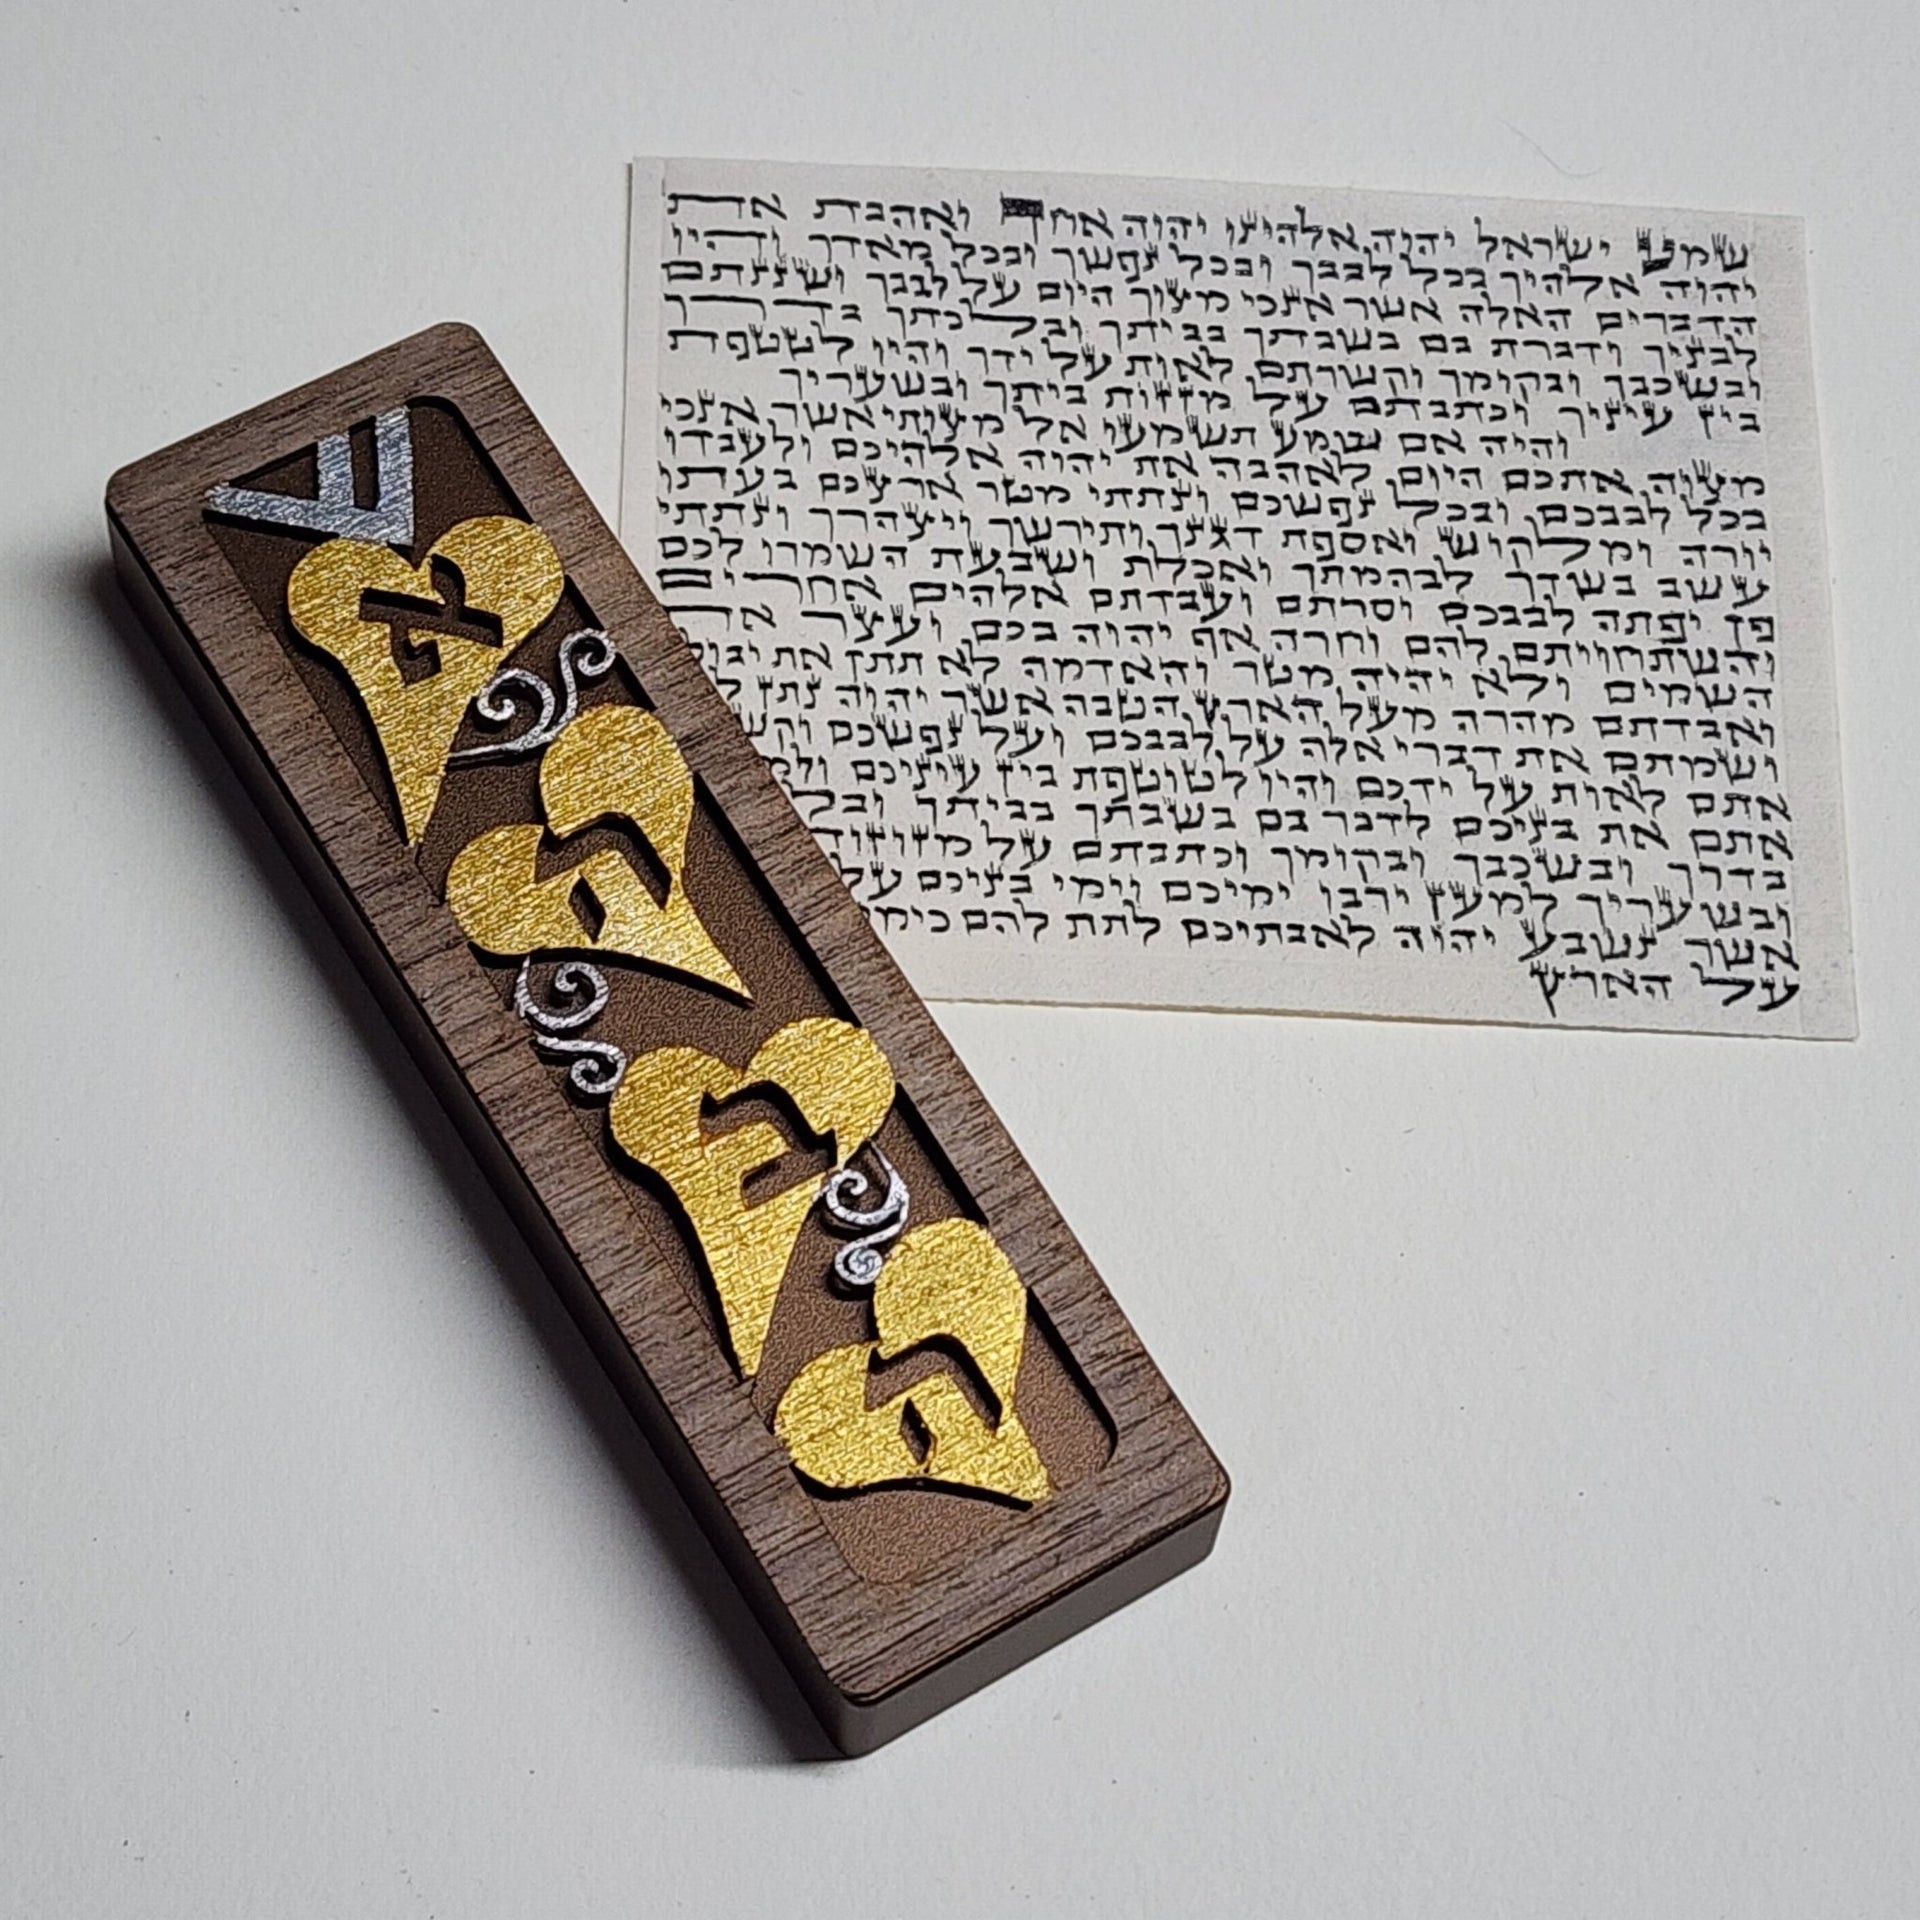 ש
א
ה
ב
ה
שמע ישראל יהוה אלהינו יהוה אחד ואהבת את
יהוה אלהיך בכל לבבך ובכל נפשך ובכל מאדך והיו
הדברים האלה אשר אנכי מצוך היום על לבבך ושננתם
לבניך ודברת בם בשבתך בביתך ובלכתך בדרך
ובשכבך ובקומך וקשרתם לאות על ידך והיו לטטפת
בין עיניך וכתבתם על מזזות ביתך ובשעריך
והיה אם שמע תשמעו אל מצותי אשר אנכי
מצוה אתכם היום לאהבה את יהוה אלהיכם ולעבדו
בכל לבבכם ובכל נפשכם ונתתי מטר ארצכם בעתו
יורה ומלקוש ואספת דגנך ותירשך ויצהרך ונתתי
עשב בשדך לבהמתך ואכלת ושבעת השמרו לכם
פן יפתה לבבכם וסרתם ועבדתם אלהים אחרים
והשתחויתם להם וחרה אף יהוה בכם ועצר את
השמים ולא יהיה מטר והאדמה לא תתן את
ואבדתם מהרה מעל הארץ הטבה אשר יהוה נתן
ושמתם את דברי אלה על לבבכם ועל נפשכם
אתם לאות על ידכם והיו לטוטפת בין עיניכם
אתם את בניכם לדבר בם בשבתך בביתך
בדרך ובשכבך ובקומך וכתבתם על
ובשעריך למען ירבו ימיכם וימי בניכם על
אשר נשבע יהוה לאבתיכם לתת להם
על הארץ